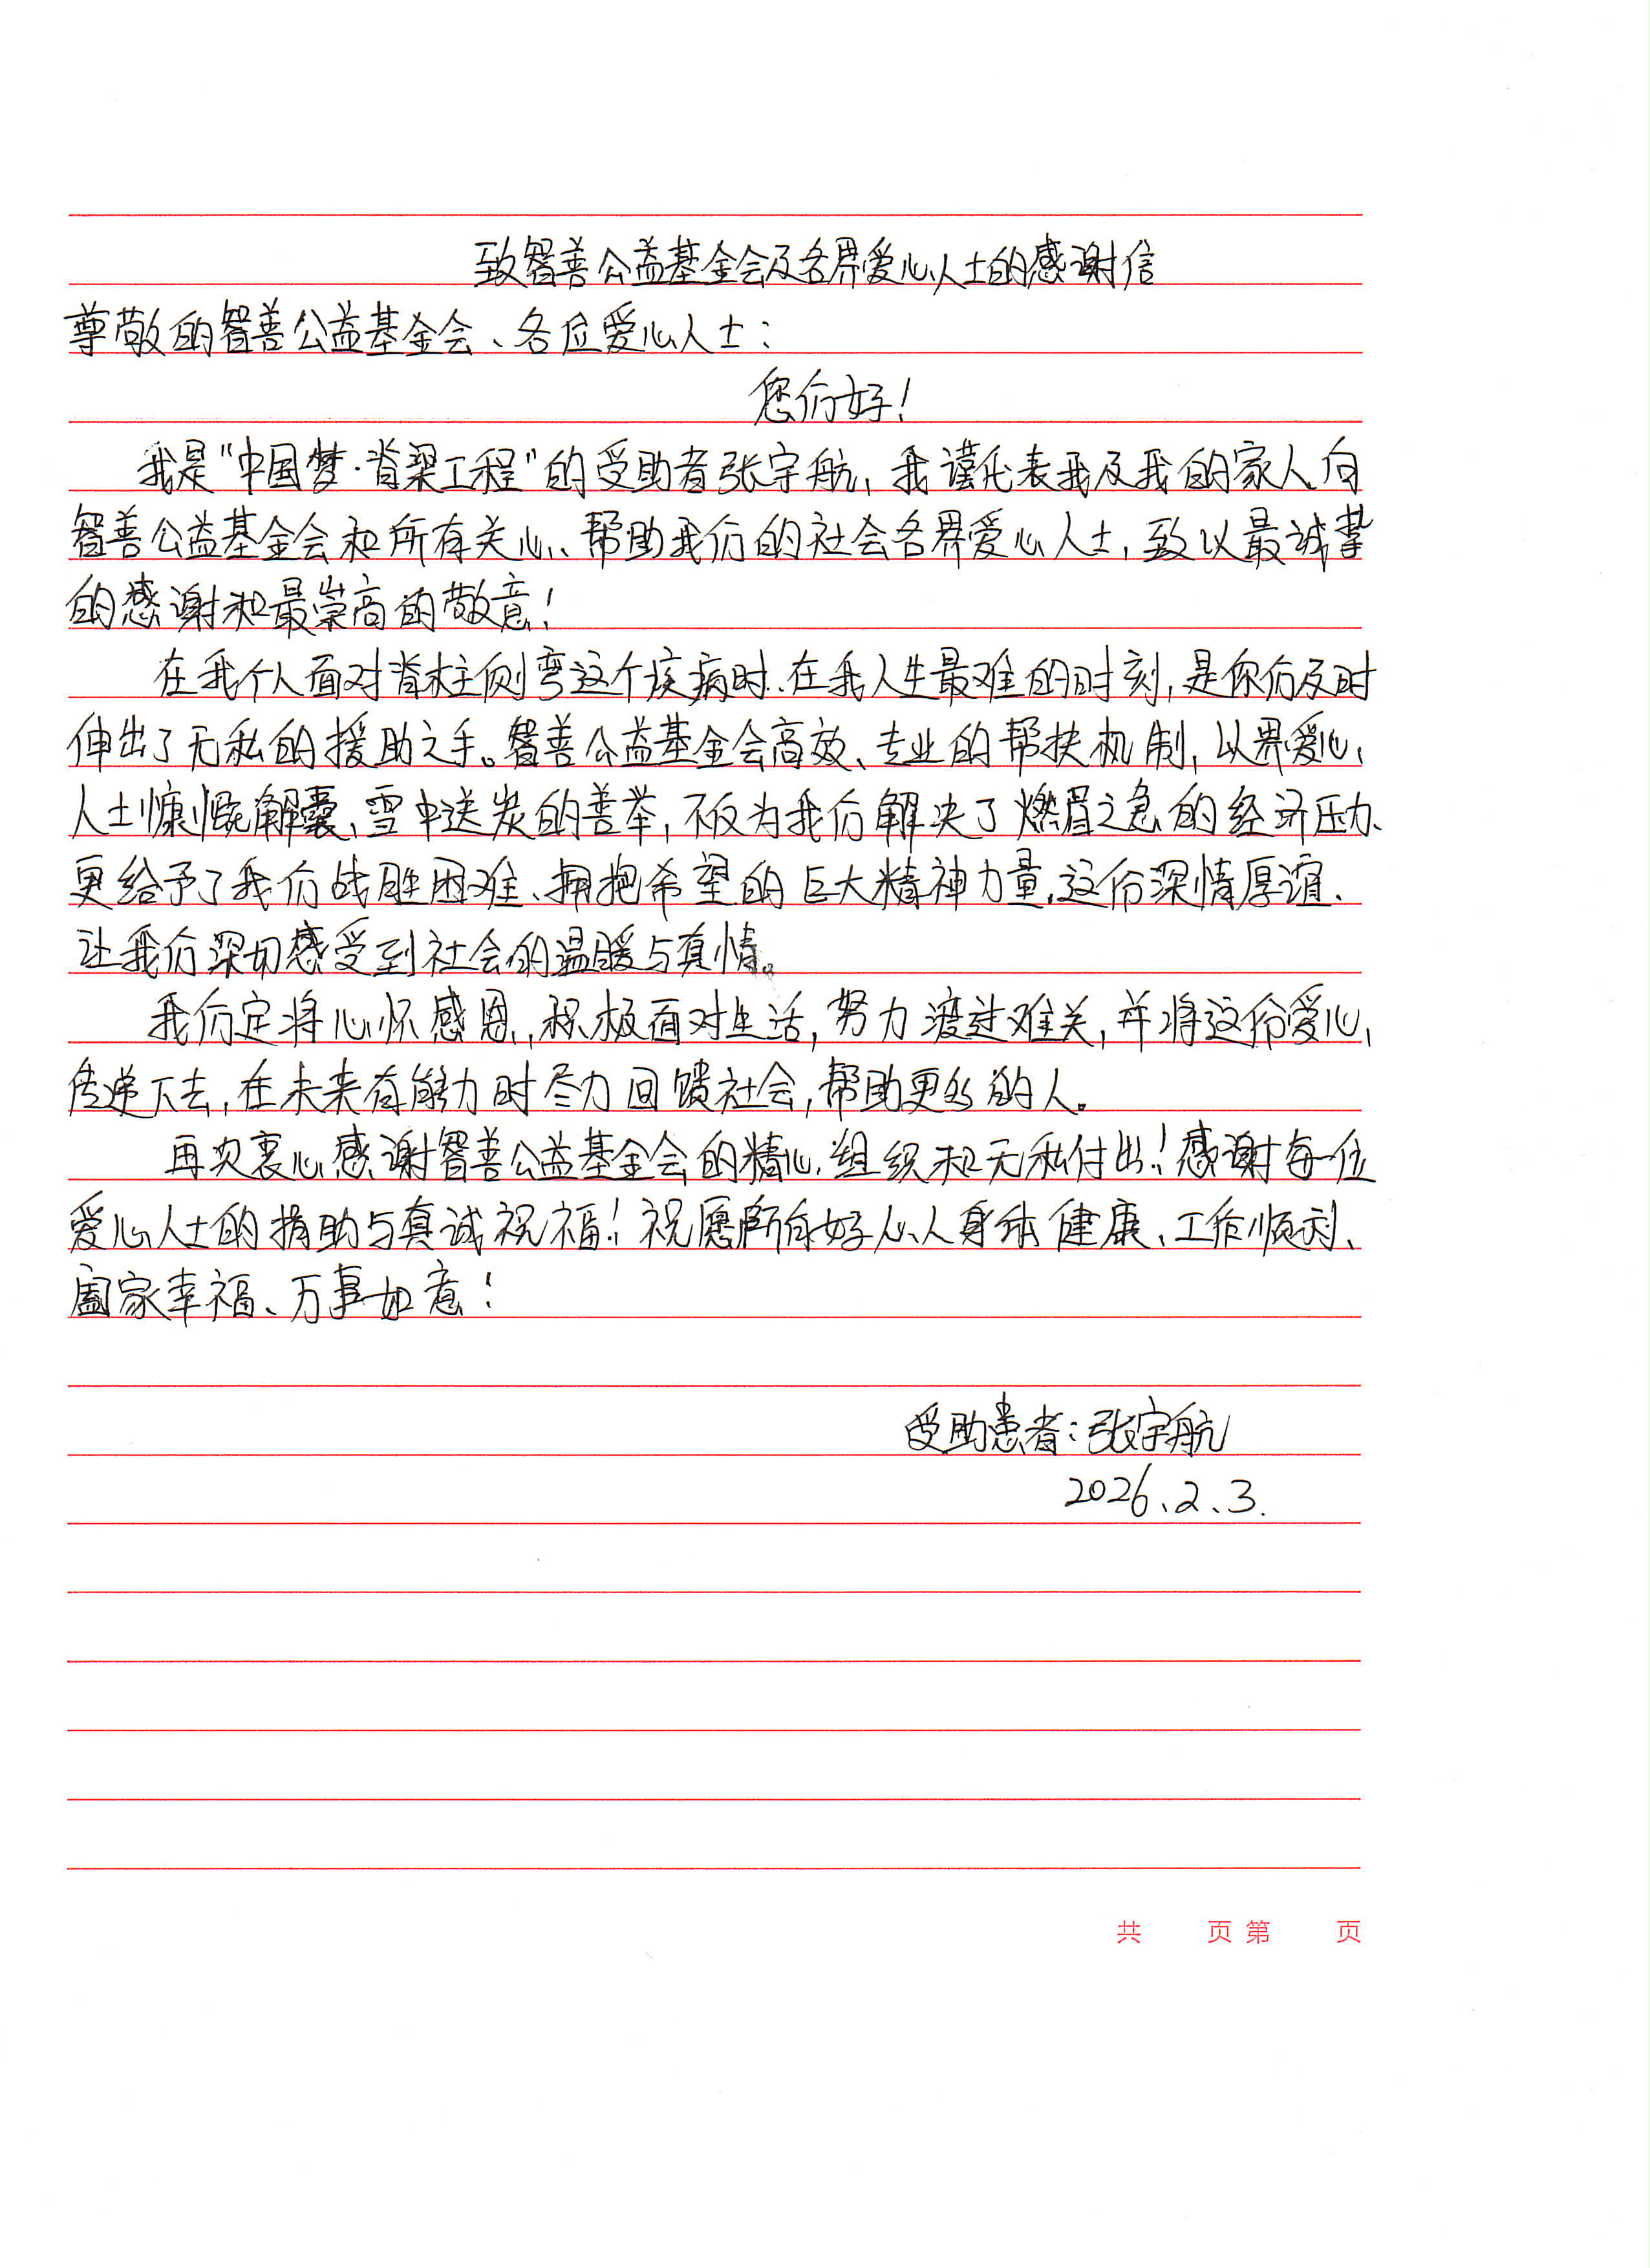 致智善公益基金会及各界爱心人士的感谢信
尊敬的智善公益基金会、各位爱心人士：
您们好！
我是“中国梦·脊梁工程”的受助者张宇航，我谨代表我及我的家人向
智善公益基金会和所有关心、帮助我们的社会各界爱心人士，致以最诚挚
的感谢和最崇高的敬意！
在我个人面对脊柱侧弯这个疾病时、在我人生最难的时刻，是你们及时
伸出了无私的援助之手。智善公益基金会高效、专业的帮扶机制，以界爱心
人士慷慨解囊、雪中送炭的善举，不仅为我们解决了燃眉之急的经济压力、
更给予了我们战胜困难、拥抱希望的巨大精神力量，这份深情厚谊、
让我们深切感受到社会的温暖与真情。
我们定将心怀感恩，积极面对生活，努力渡过难关，并将这份爱心
传递下去，在未来有能力时尽力回馈社会，帮助更多的人。
再次衷心感谢智善公益基金会的精心组织和无私付出！感谢每一位
爱心人士的捐助与真诚祝福！祝愿所有好心人身体健康、工作顺利、
阖家幸福、万事如意！
受助患者：张宇航
2026.2.3.
共 页 第 页